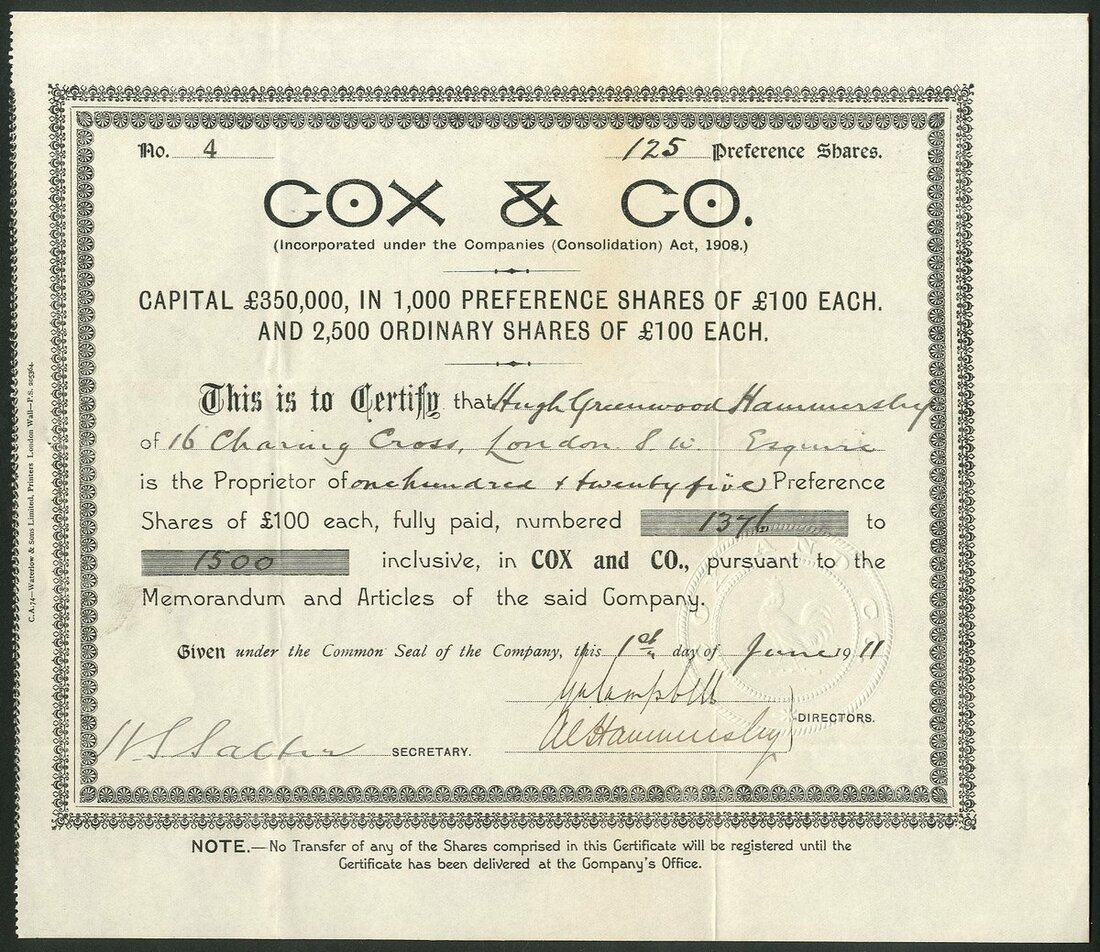 No. 4
125 Preference Shares.
COX & CO.
(Incorporated under the Companies (Consolidation) Act, 1908.)
CAPITAL £350,000, IN 1,000 PREFERENCE SHARES OF £100 EACH.
AND 2,500 ORDINARY SHARES OF £100 EACH.
This is to Certify that Hugh Greenwood Hammersley
of 16 Charing Cross, London S.W. Esquire
is the Proprietor of one hundred & twenty five Preference
Shares of £100 each, fully paid, numbered 1376 to
1500 inclusive, in COX and CO., pursuant to the
Memorandum and Articles of the said Company.
Given under the Common Seal of the Company, this 1st day of June 1911
DIRECTORS.
Hammersley
SECRETARY.
NOTE.—No Transfer of any of the Shares comprised in this Certificate will be registered until the
Certificate has been delivered at the Company's Office.
C.A.74—Waterlow & Sons Limited, Printers London Wall—F.S. 205364